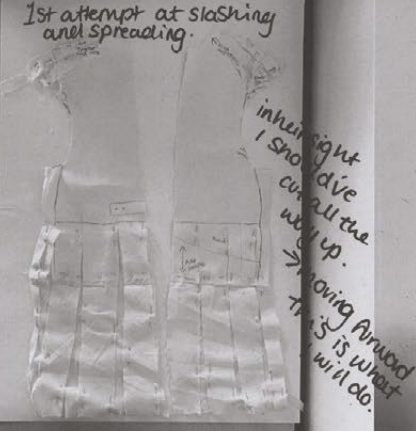 1st attempt at slashing
and spreading.
in heinsight
I should've
cut all the
way up.
→ moving forward
this is what
I will do.